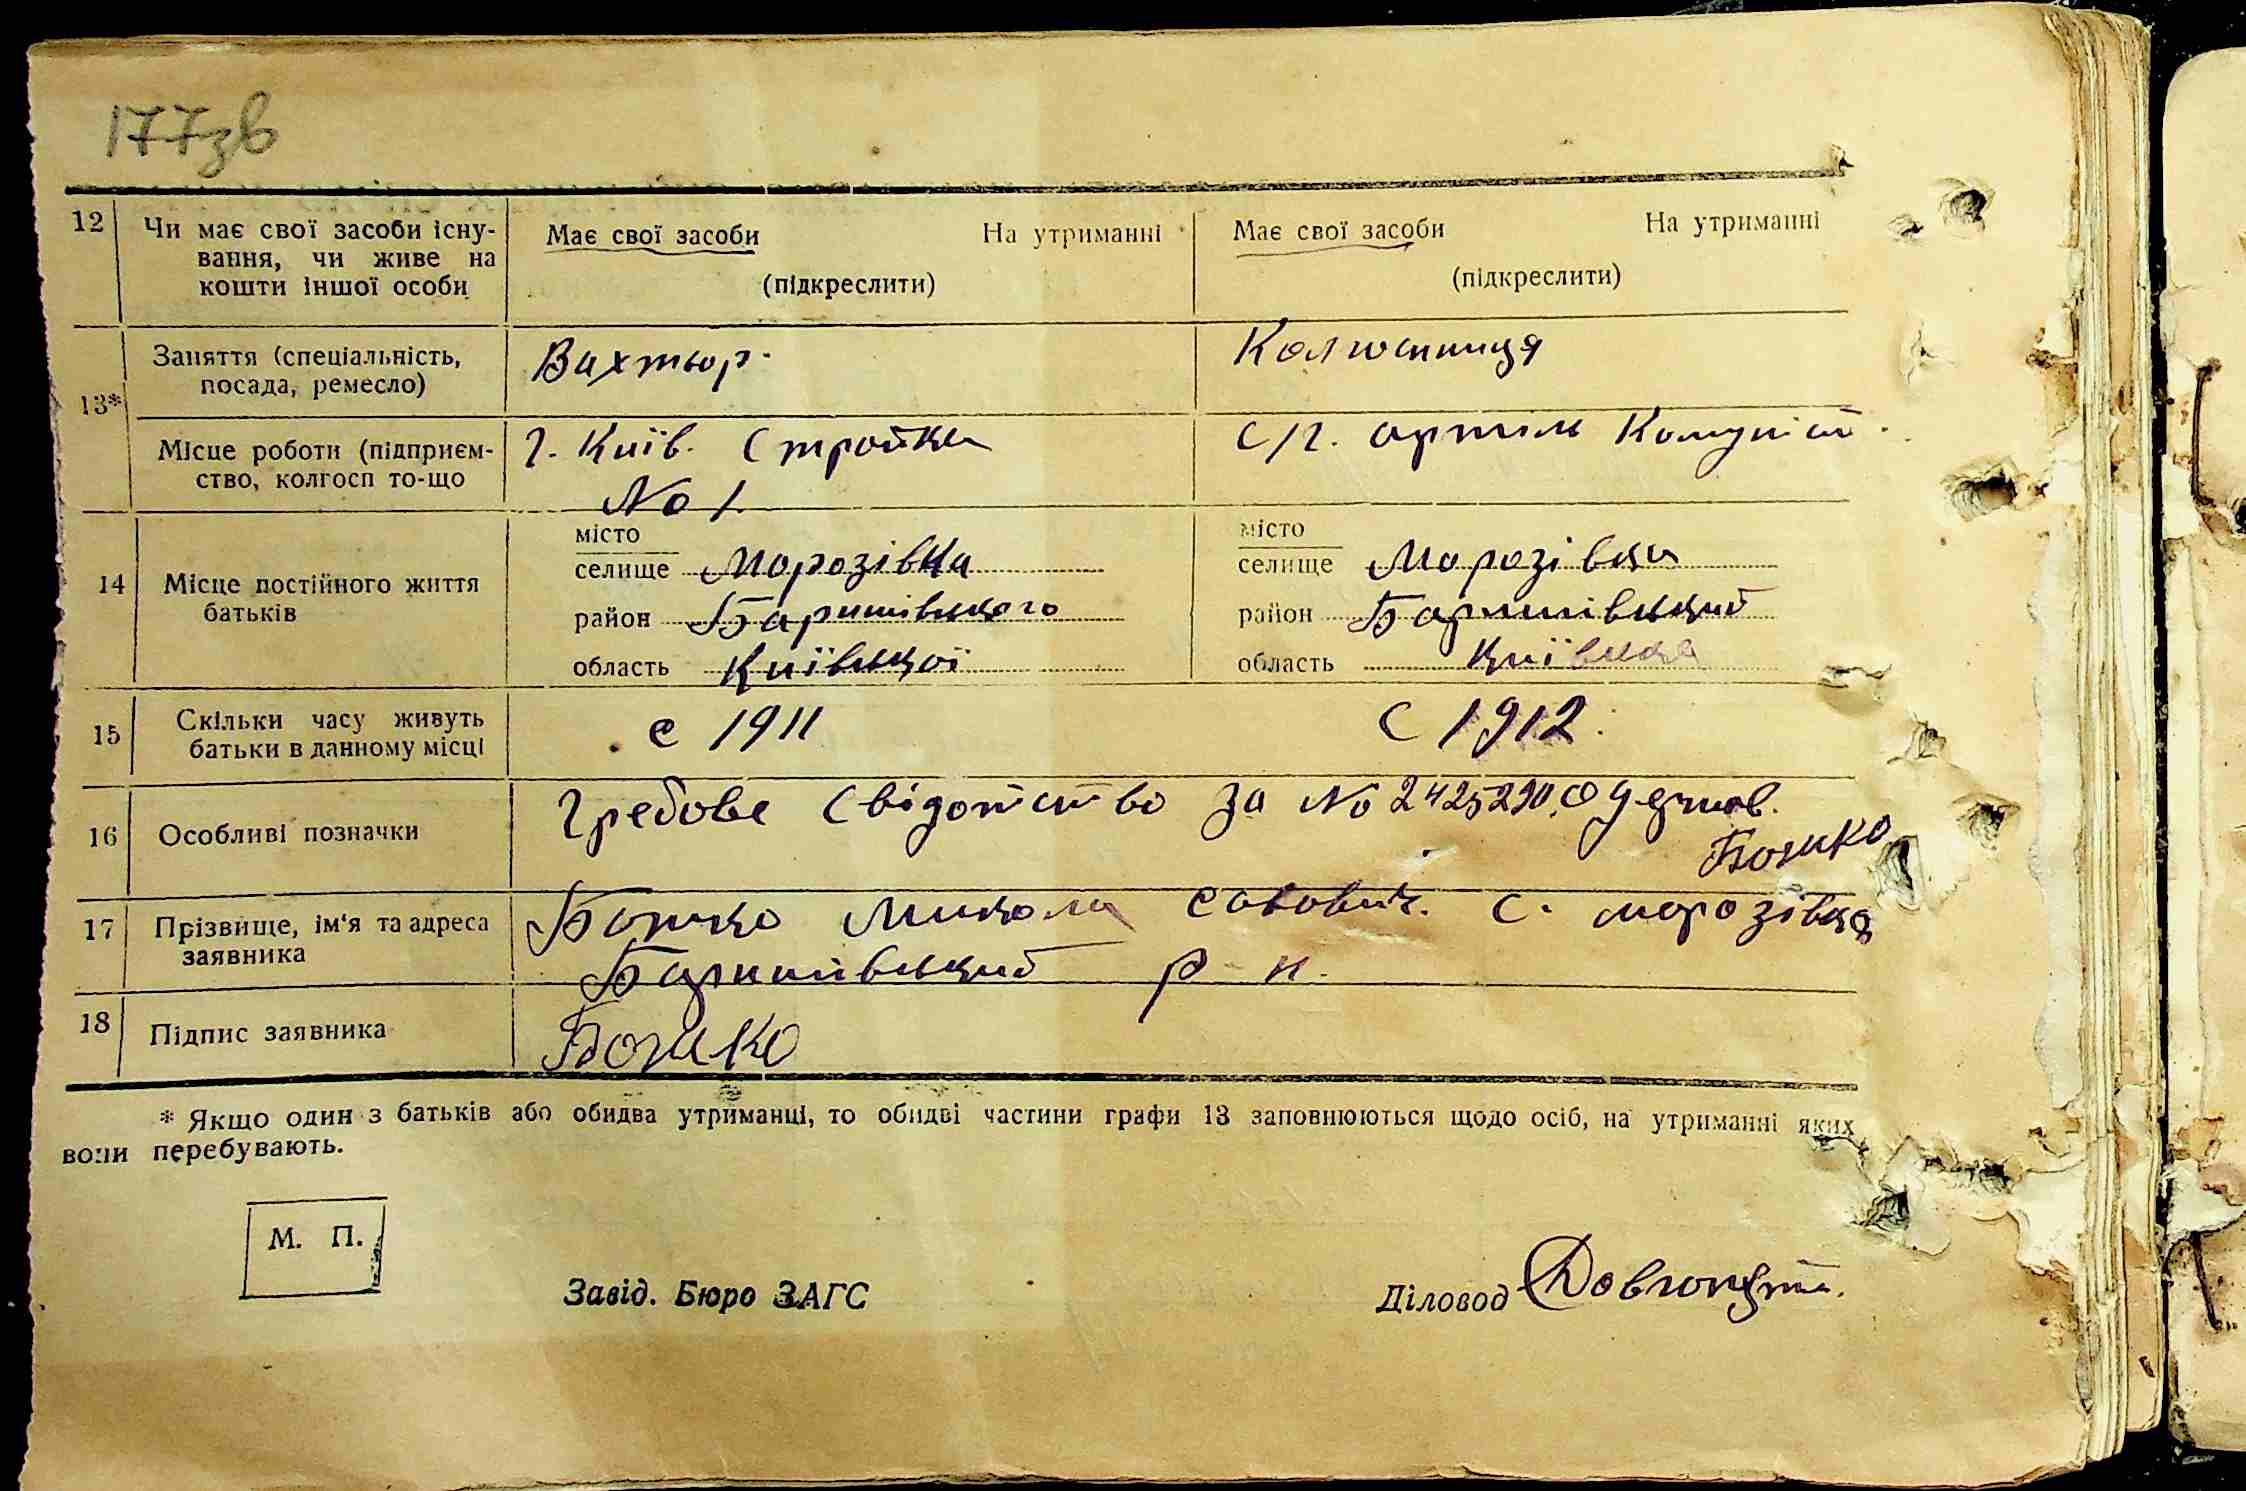 177зв
12 Чи має свої засоби існу-
вання, чи живе на
кошти іншої особи
Має свої засоби На утриманні
(підкреслити)
Має свої засоби На утриманні
(підкреслити)
13*
Заняття (спеціальність,
посада, ремесло)
Вахтьор.
Колгоспниця
Місце роботи (підприєм-
ство, колгосп то-що
г. Київ. Стройка
No 1.
С/г. артіль Комуніст.
14 Місце постійного життя
батьків
місто
селище Морозівка
район Баришівського
область Київської
місто
селище Морозівка
район Баришівський
область Київська
15 Скільки часу живуть
батьки в данному місці
с 1911
С 1912.
16 Особливі позначки
Свідотство за No 2425290
Божко
17 Прізвище, ім'я та адреса
заявника
Божко Микола Савович. С. Морозівка
Баришівський р-н.
18 Підпис заявника
Божко
* Якщо один з батьків або обидва утриманці, то обидві частини графи 13 заповнюються щодо осіб, на утриманні яких
вони перебувають.
М. П.
Завід. Бюро ЗАГС
Діловод